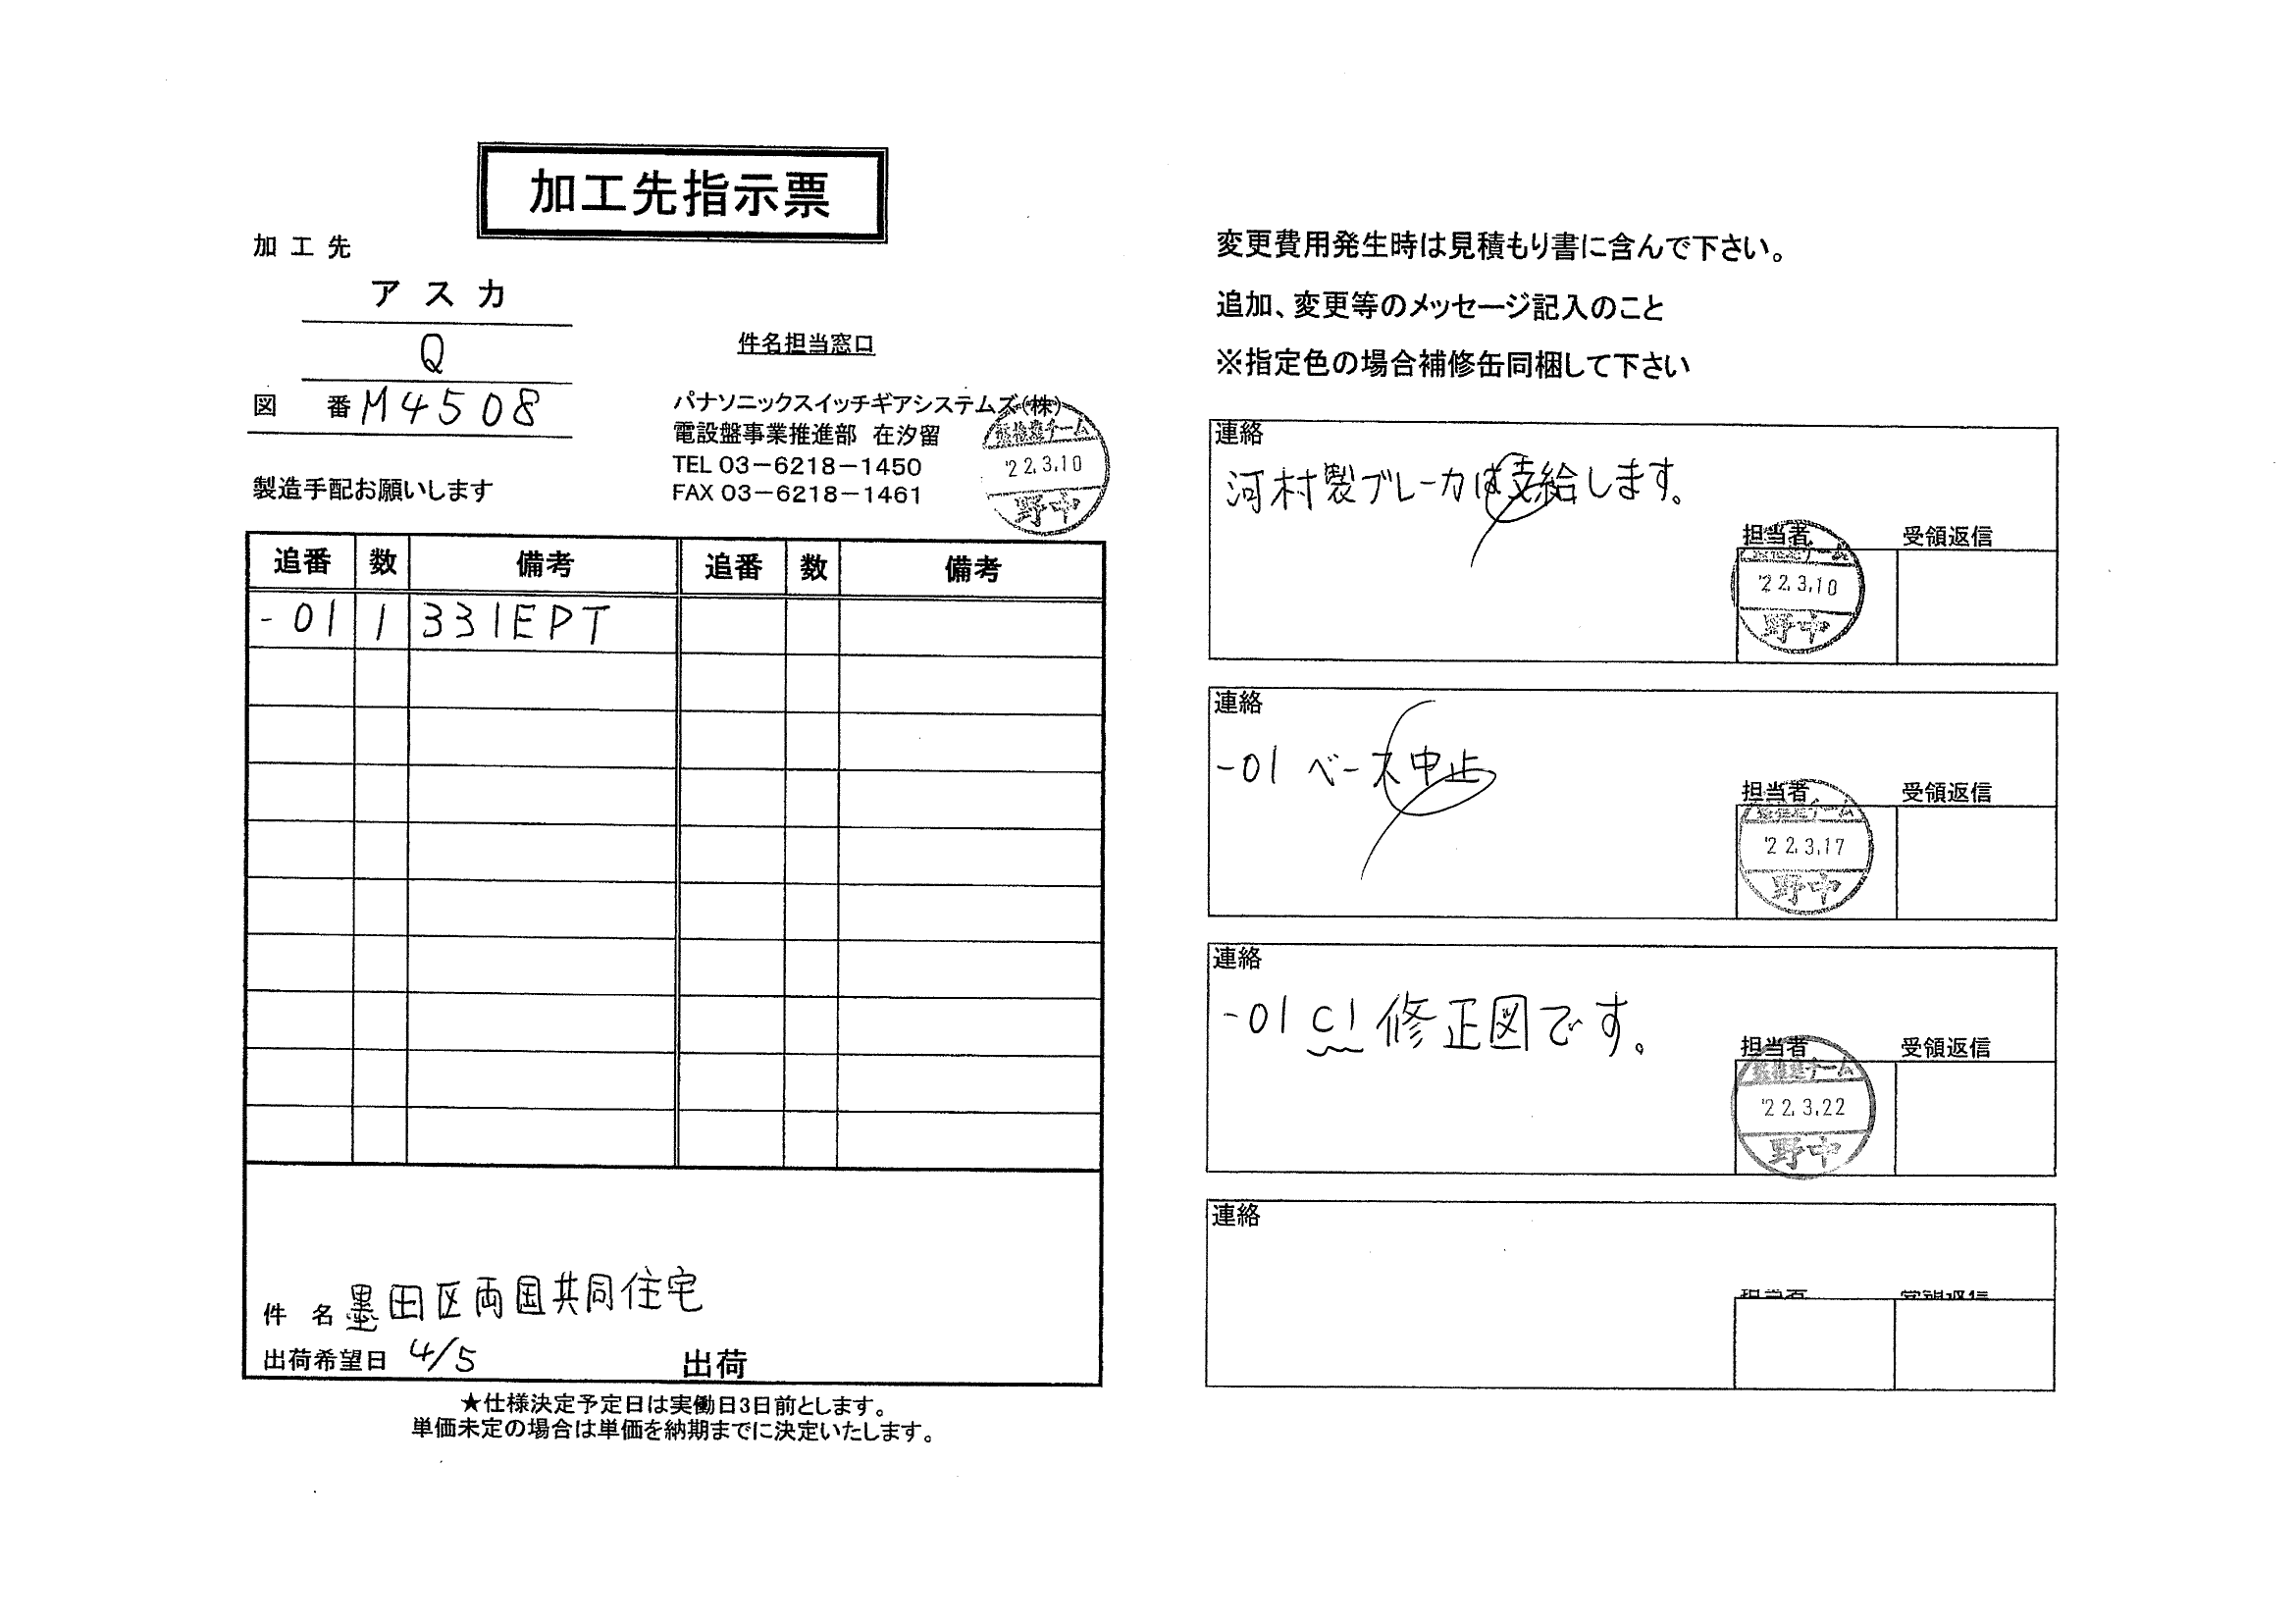 加工先指示票
加工先
アスカ
Q
図 番 M4508
製造手配お願いします
件名担当窓口
パナソニックスイッチギアシステムズ(株)
電設盤事業推進部 在汐留
TEL 03－6218－1450
FAX 03－6218－1461
'22.3.10
野中
追番 数 備考 追番 数 備考
-01 1 331EPT
件 名 墨田区両国共同住宅
出荷希望日 4/5 出荷
★仕様決定予定日は実働日3日前とします。
単価未定の場合は単価を納期までに決定いたします。
変更費用発生時は見積もり書に含んで下さい。
追加、変更等のメッセージ記入のこと
※指定色の場合補修缶同梱して下さい
連絡
河村製ブレーカは支給します。
担当者 受領返信
'22.3.10
野中
連絡
-01 ベース中止
担当者 受領返信
'22.3.17
野中
連絡
-01 C1 修正図です。
担当者 受領返信
'22.3.22
野中
連絡
担当者 受領返信